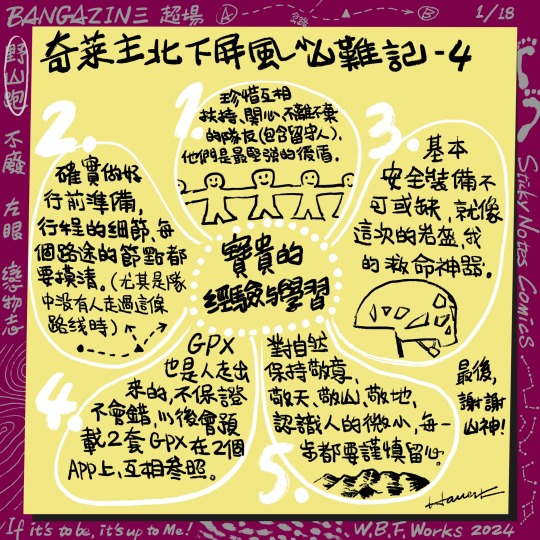 BANGAZIN三 超場
A
B
1/18
奇萊主北下屏風山難記-4
野山跑
不廢
左眼
戀物志
Sticky Notes Comics
1.
珍惜互相
扶持、關心、不離不棄
的隊友(包含留守人),
他們是最堅強的後盾。
2.
確實做好
行前準備,
行程的細節,每
個路途的節點都
要摸清。(尤其是隊
中没有人走過這條
路线時)
3.
基本
安全裝備不
可或缺,就像
這次的岩盔,我
的救命神器。
寶貴的
經驗与學習
4.
GPX
也是人走出
來的,不保證
不會錯,以後會預
載2套GPX在2個
APP上,互相參照。
5.
對自然
保持敬意,
敬天、敬山、敬地,
認識人的微小,每一
步都要謹慎留心。
最後,
謝謝
山神!
If it's to be, it's up to Me!
W.B.F. Works 2024